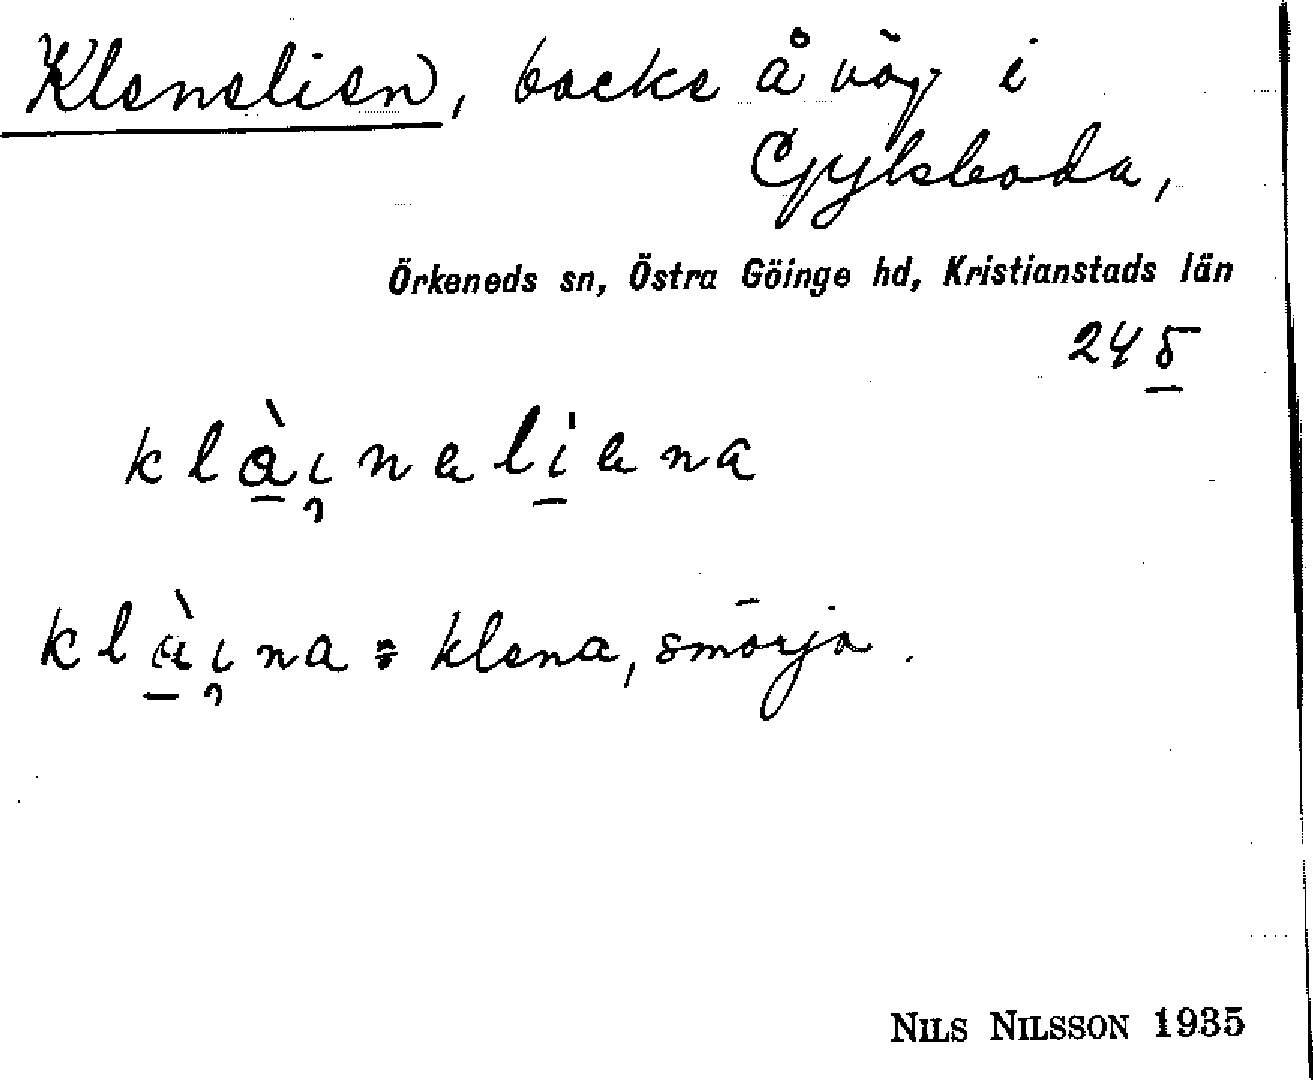 Klenelien, backe å väg i
Gylsboda,
Örkeneds sn, Östra Göinge hd, Kristianstads län
245
klàınaliana
klàına = klena, smörja.
NILS NILSSON 1935